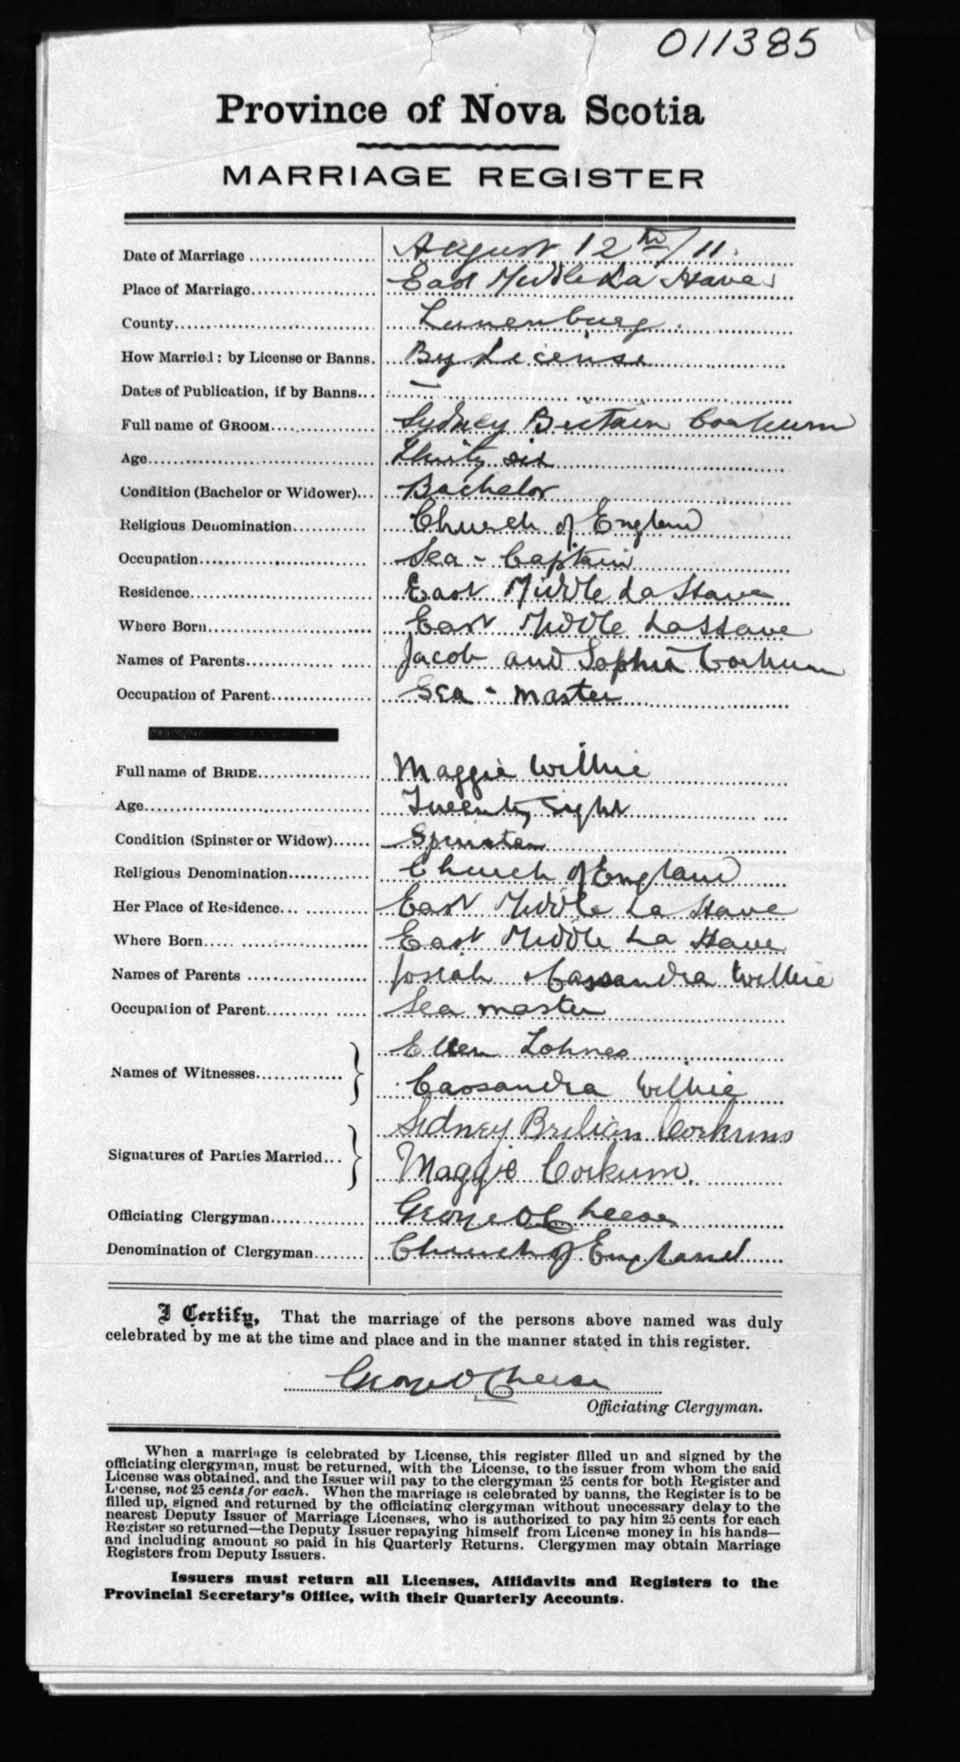 011385
Province of Nova Scotia
MARRIAGE REGISTER
Date of Marriage ... August 12th/11.
Place of Marriage ... East Middle La Have
County ... Lunenburg.
How Married: by License or Banns. By License
Dates of Publication, if by Banns... —
Full name of GROOM ... Sydney Britain Corkum
Age ... Thirty six
Condition (Bachelor or Widower)... Bachelor
Religious Denomination ... Church of England
Occupation ... Sea - Captain
Residence ... East Middle La Have
Where Born ... East Middle LaHave
Names of Parents ... Jacob and Sophia Corkum
Occupation of Parent ... Sea - master
Full name of BRIDE ... Maggie Wilkie
Age ... Twenty Eight
Condition (Spinster or Widow) ... Spinster
Religious Denomination ... Church of England
Her Place of Residence ... East Middle La Have
Where Born ... East Middle La Have
Names of Parents ... Josiah & Cassandra Wilkie
Occupation of Parent ... Sea master
Names of Witnesses ... Ellen Lohnes
Cassandra Wilkie
Signatures of Parties Married ... Sidney Corkum
Maggie Corkum.
Officiating Clergyman ... George O Cheese
Denomination of Clergyman ... Church of England
I Certify, That the marriage of the persons above named was duly
celebrated by me at the time and place and in the manner stated in this register.
George O Cheese
Officiating Clergyman.
When a marriage is celebrated by License, this register filled up and signed by the
officiating clergyman, must be returned, with the License, to the issuer from whom the said
License was obtained, and the Issuer will pay to the clergyman 25 cents for both Register and
License, not 25 cents for each. When the marriage is celebrated by banns, the Register is to be
filled up, signed and returned by the officiating clergyman without unecessary delay to the
nearest Deputy Issuer of Marriage Licenses, who is authorized to pay him 25 cents for each
Register so returned—the Deputy Issuer repaying himself from License money in his hands—
and including amount so paid in his Quarterly Returns. Clergymen may obtain Marriage
Registers from Deputy Issuers.
Issuers must return all Licenses, Affidavits and Registers to the
Provincial Secretary's Office, with their Quarterly Accounts.